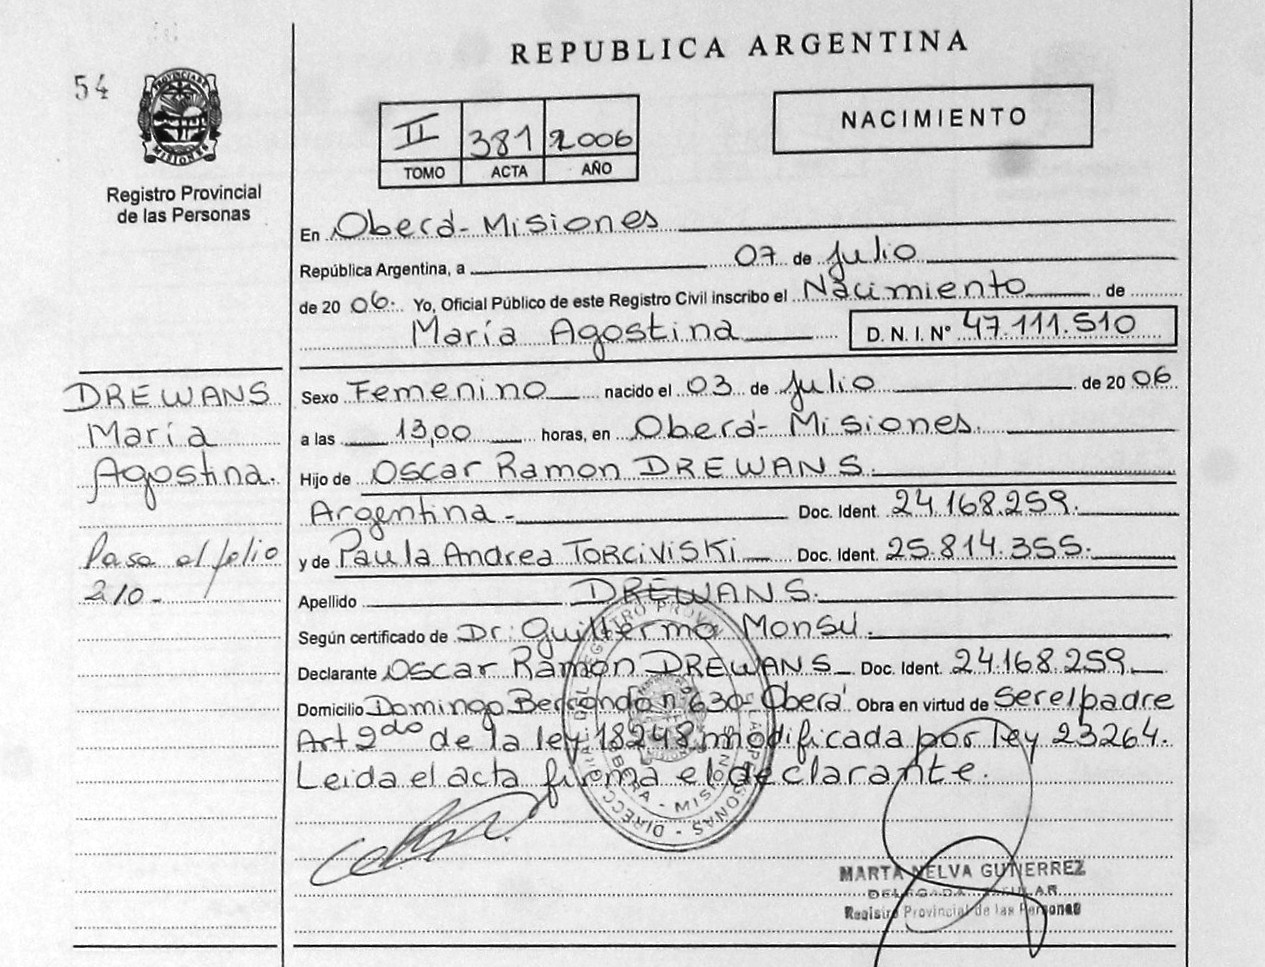 REPUBLICA ARGENTINA
54
PROVINCIA DE MISIONES
Registro Provincial
de las Personas
II 381 2006
TOMO ACTA AÑO
NACIMIENTO
En Oberá - Misiones
República Argentina, a 07 de Julio
de 20 06. Yo, Oficial Público de este Registro Civil inscribo el Nacimiento de
María Agostina D. N. I. N° 47.111.510
DREWANS
María
Agostina.
Pasa al folio
210-
Sexo Femenino nacido el 03 de Julio de 20 06
a las 13,00 horas, en Oberá - Misiones.
Hijo de Oscar Ramon DREWANS.
Argentina - Doc. Ident. 24.168.259.
y de Paula Andrea TORCIVISKI Doc. Ident. 25.814.355.
Apellido DREWANS.
Según certificado de Dr. Guillermo Monsu.
Declarante Oscar Ramon DREWANS Doc. Ident. 24.168.259.
Domicilio Domingo n° 630 - Oberá Obra en virtud de Ser el padre
Art 2do de la ley 18248 modificada por ley 23264.
Leida el acta firma el declarante.
OBERA - MISIONES
MARTA NELVA GUTIERREZ
DELEGADA TITULAR
Registro Provincial de las Personas